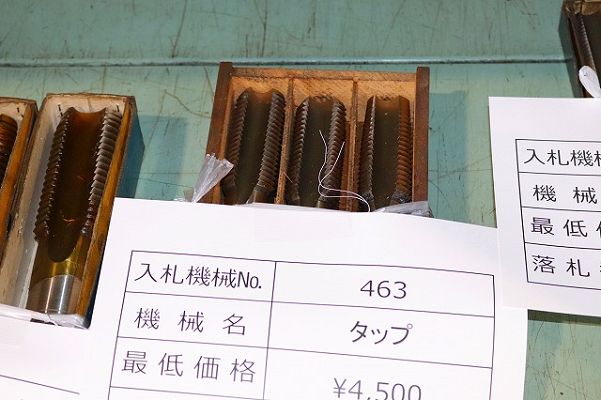 入札機械No. 463
機械名 タップ
最低価格 ¥4,500
入札機械
機械
最低
落札